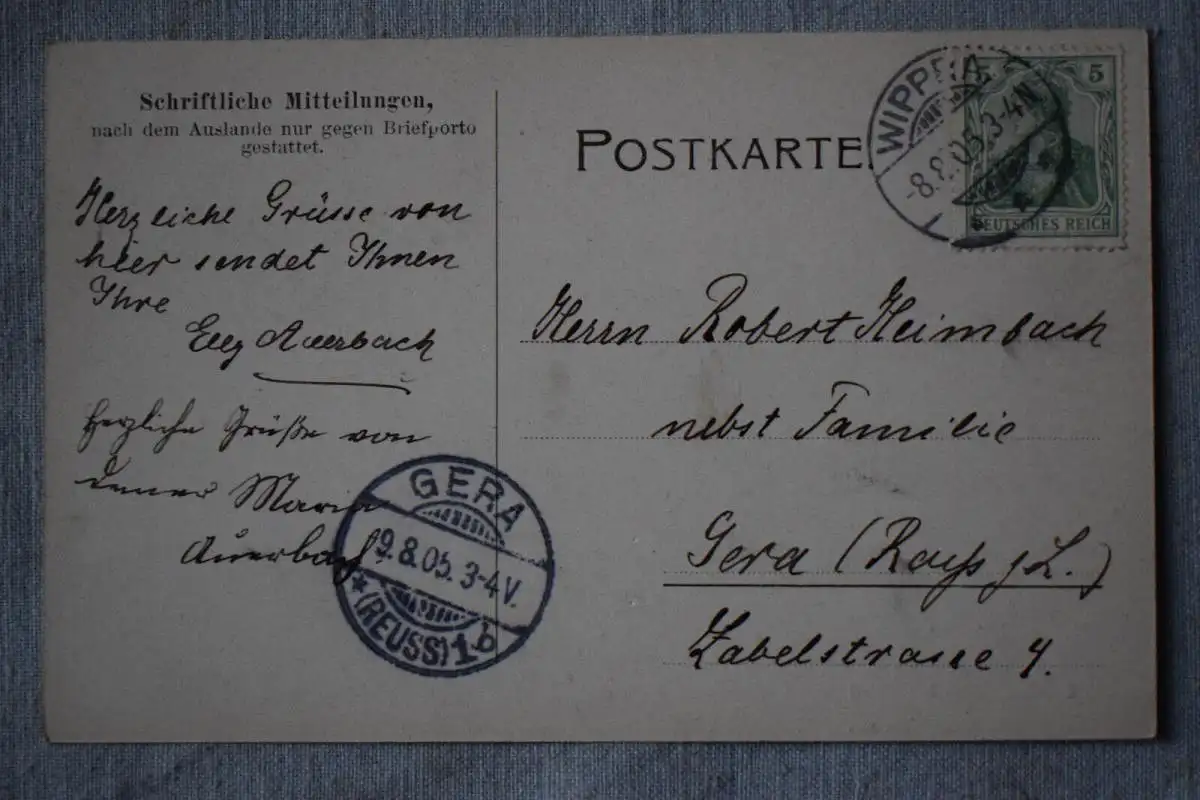 Schriftliche Mitteilungen,
nach dem Auslande nur gegen Briefporto
gestattet.
Herzliche Grüsse von
hier sendet Ihnen
Ihre
Elly Auerbach
Herzliche Grüße von
Maria
Auerbach
POSTKARTE.
WIPPRA
-8.8.05. 3-4N.
5
5
DEUTSCHES REICH
Herrn Robert Heimbach
nebst Familie
Gera (Reuß j. L.)
Zabelstrasse 4.
GERA
9.8.05. 3-4V.
*(REUSS) 1b